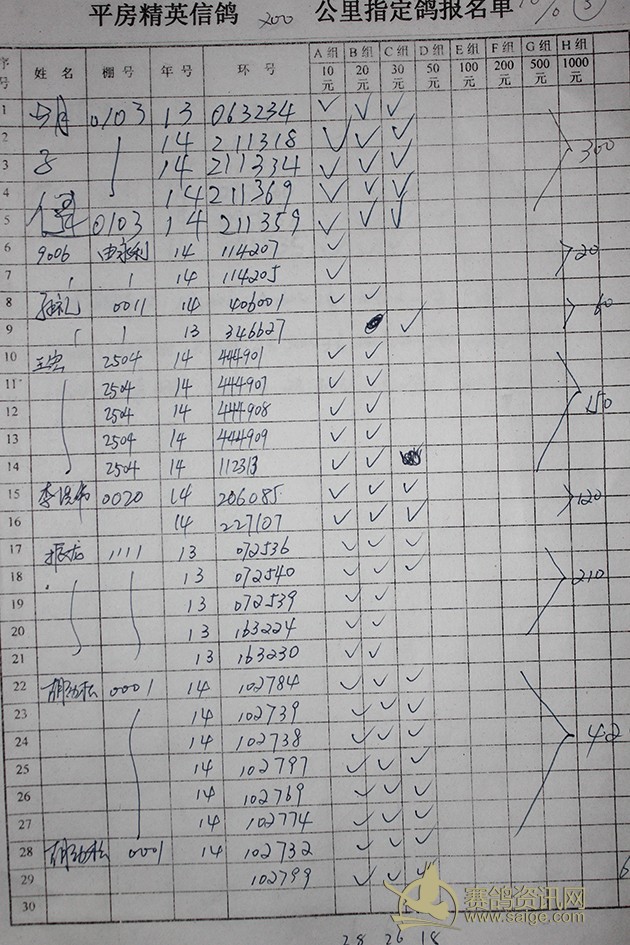 平房精英信鸽 200 公里指定鸽报名单 10% ③
序号 姓名 棚号 年号 环号 A组10元 B组20元 C组30元 D组50元 E组100元 F组200元 G组500元 H组1000元
1 0103 13 063234 ✓ ✓ ✓
2 14 211318 ✓ ✓ ✓
3 14 211334 ✓ ✓ ✓ 300
4 14 211369 ✓ ✓ ✓
5 0103 14 211359 ✓ ✓ ✓
6 9006 由永利 14 114207 ✓ 20
7 14 114205 ✓
8 0011 14 406001 ✓ ✓ 60
9 13 346627 ✓
10 王宏 2504 14 444901 ✓ ✓
11 2504 14 444907 ✓ ✓
12 2504 14 444908 ✓ ✓ 150
13 2504 14 444909 ✓ ✓
14 2504 14 112313 ✓ ✓
15 0020 14 206085 ✓ ✓ ✓ 120
16 14 227107 ✓ ✓ ✓
17 振龙 1111 13 072536 ✓ ✓ ✓
18 13 072540 ✓ ✓ ✓ 210
19 13 072539 ✓ ✓
20 13 163224 ✓ ✓
21 13 163230 ✓ ✓
22 胡劲松 0001 14 102784 ✓ ✓ ✓
23 14 102739 ✓ ✓ ✓
24 14 102738 ✓ ✓ ✓ 42
25 14 102797 ✓ ✓ ✓
26 14 102769 ✓ ✓ ✓
27 14 102774 ✓ ✓ ✓
28 胡劲松 0001 14 102732 ✓ ✓ ✓
29 102799 ✓ ✓ ✓
30
28 26 18
赛鸽资讯网
www.saige.com